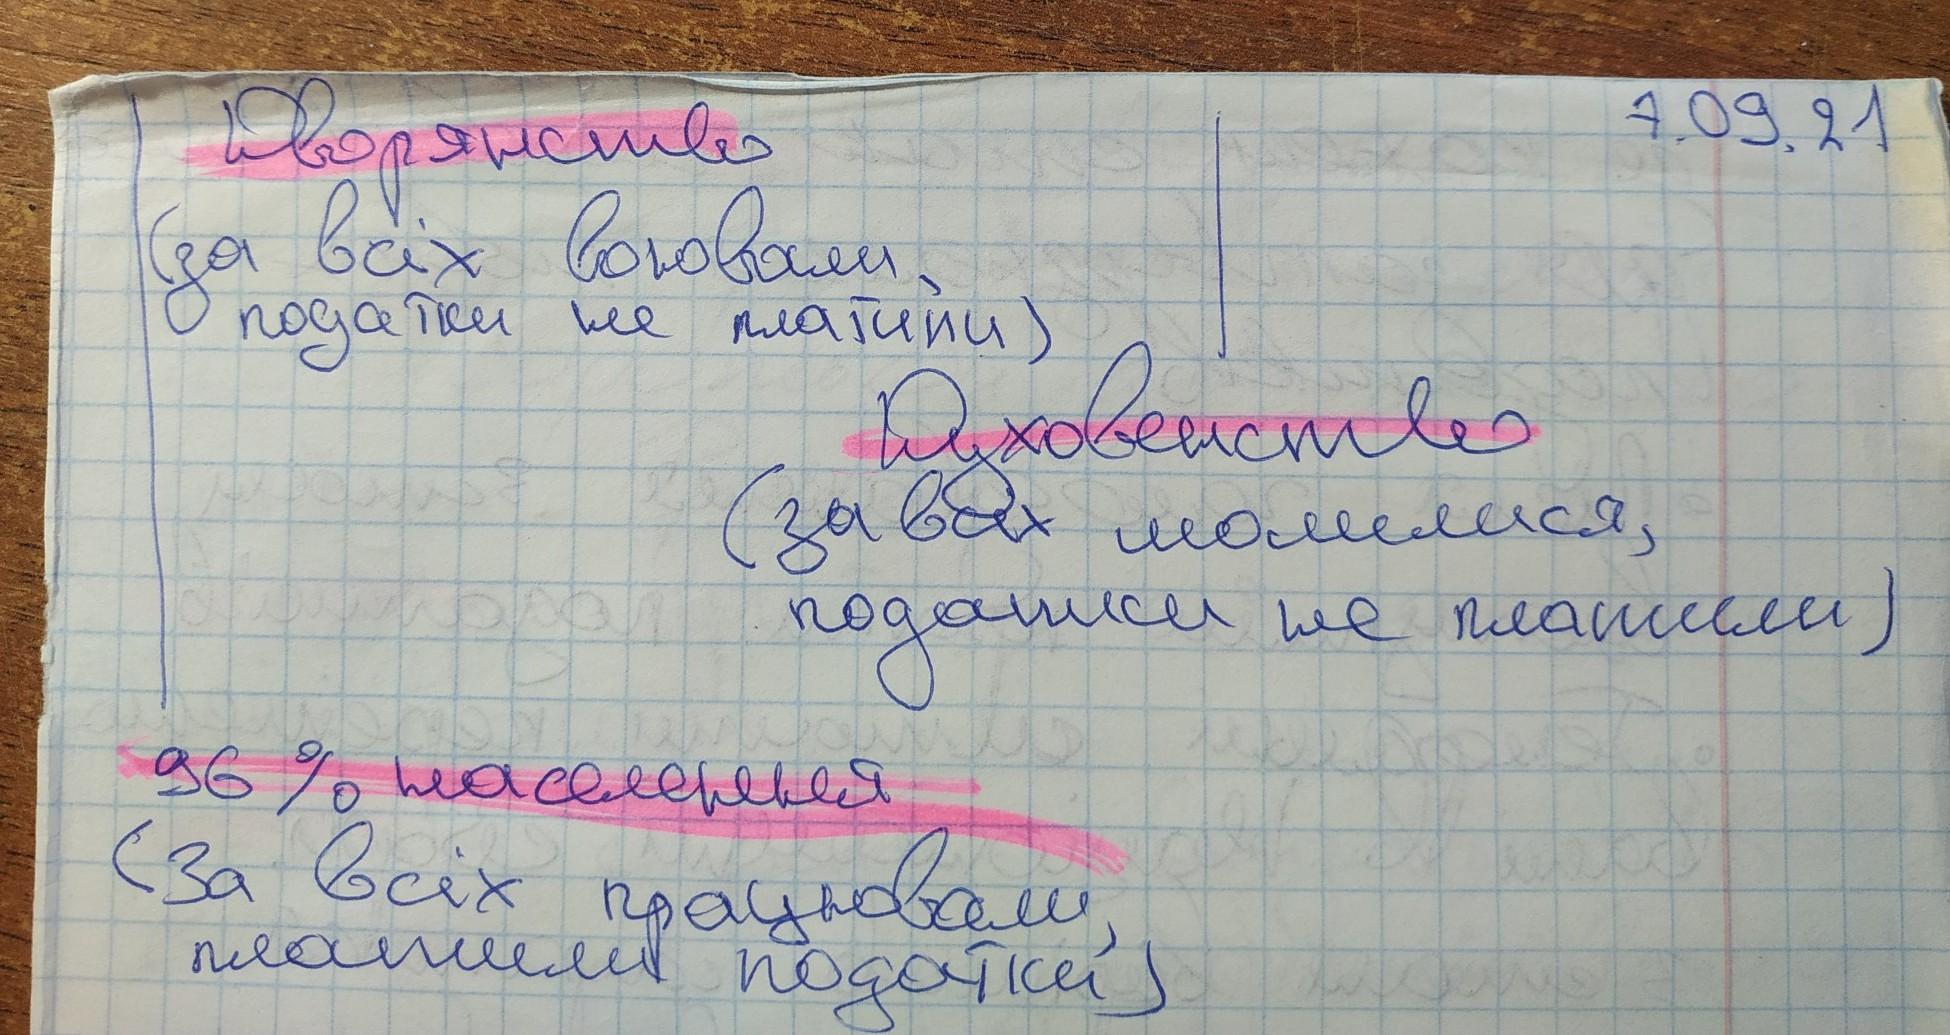 7.09.21
Дворянство
(за всіх воювали,
податки не платили)
Духовенство
(за всіх молилися,
податки не платили)
96 % населення
(За всіх працювали,
платили податки)